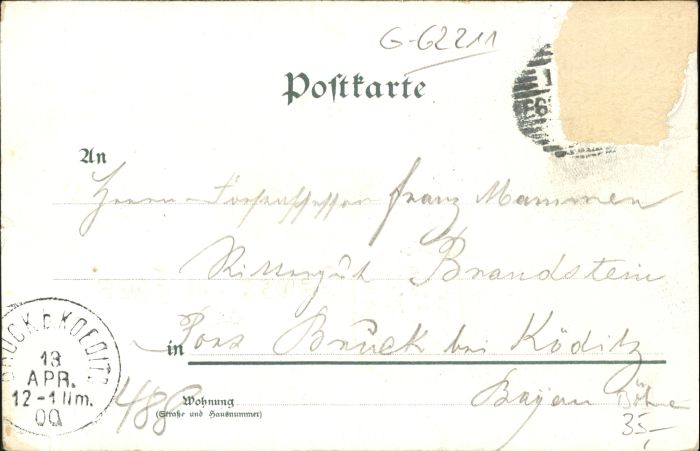 G-62211
Postkarte
An
Herrn Forstassessor Franz Mammen
Rittergut Brandstein
in Post Brück bei Köditz
Wohnung
(Straße und Hausnummer)
Bayern
Böhme
35,-
488
BRÜCK b. KOEDITZ
13
APR.
12-1 Nm.
00